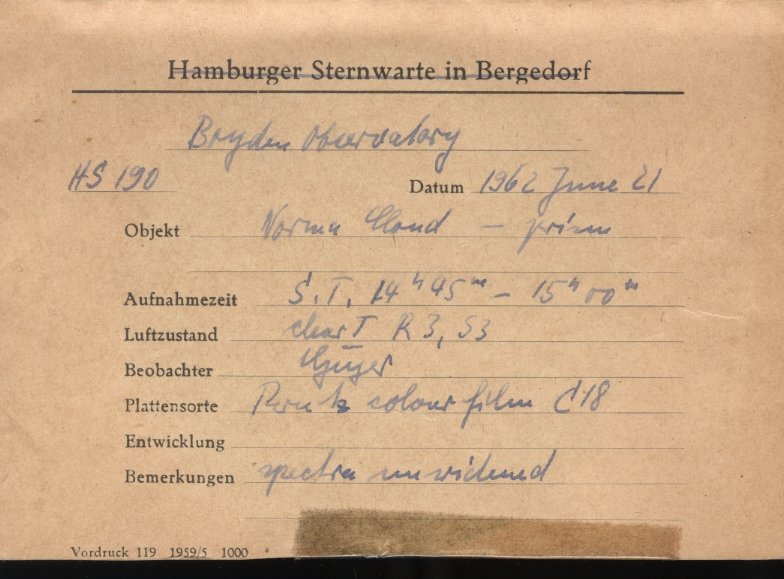 Hamburger Sternwarte in Bergedorf
Boyden Observatory
HS 190 Datum 1962 June 21
Objekt Norma Cloud – prism
Aufnahmezeit S.T. 14h 45m – 15h 00m
Luftzustand clear T R3, S3
Beobachter
Plattensorte Perutz colour film C18
Entwicklung
Bemerkungen spectra unwidened
Vordruck 119 1959/5 1000